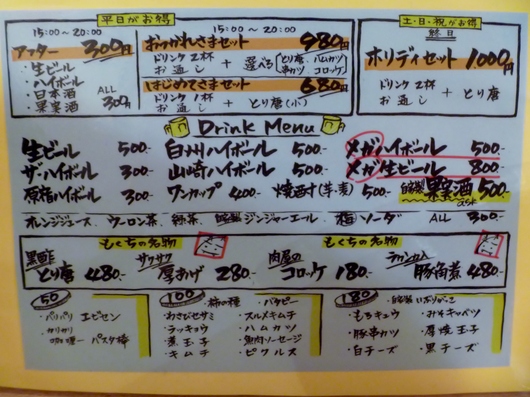 平日がお得
15:00～20:00
アフター 300円
・生ビール
・ハイボール
・日本酒
・果実酒
ALL
300円
15:00～20:00
おつかれさまセット 980円
ドリンク2杯
お通し
+ 選べる
とり唐、ハムカツ
串カツ コロッケ
はじめてさまセット 680円
ドリンク1杯
お通し
+ とり唐(小)
土・日・祝がお得
終日
ホリデイセット 1000円
ドリンク2杯
お通し
+ とり唐
Drink Menu
生ビール 500-
白州ハイボール 500-
メガハイボール 500-
ザ・ハイボール 300-
山崎ハイボール 500-
メガ生ビール 800-
原宿ハイボール 300-
ワンカップ 400-
焼酎(芋・麦) 500
自家製果実酒 500-
ask
オレンジジュース、ウーロン茶、緑茶、自家製ジンジャーエール、梅ソーダ ALL 300-
もくちの名物
もくちの名物
黒酢
とり唐 480-
サクサク
厚あげ 280-
肉屋の
コロッケ 180-
豚角煮 480-
50
・パリパリ エビセン
・カリカリ
カレー パスタ棒
100
・柿の種
・バタピー
・わさびせサミ
・スルメキムチ
・ラッキョウ
・ハムカツ
・煮玉子
・魚肉ソーセージ
・キムチ
・ピクルス
180
・自家製 いぶりがっこ
・もろキュウ
・みそキャベツ
・豚串カツ
・厚焼玉子
・白チーズ
・黒チーズ